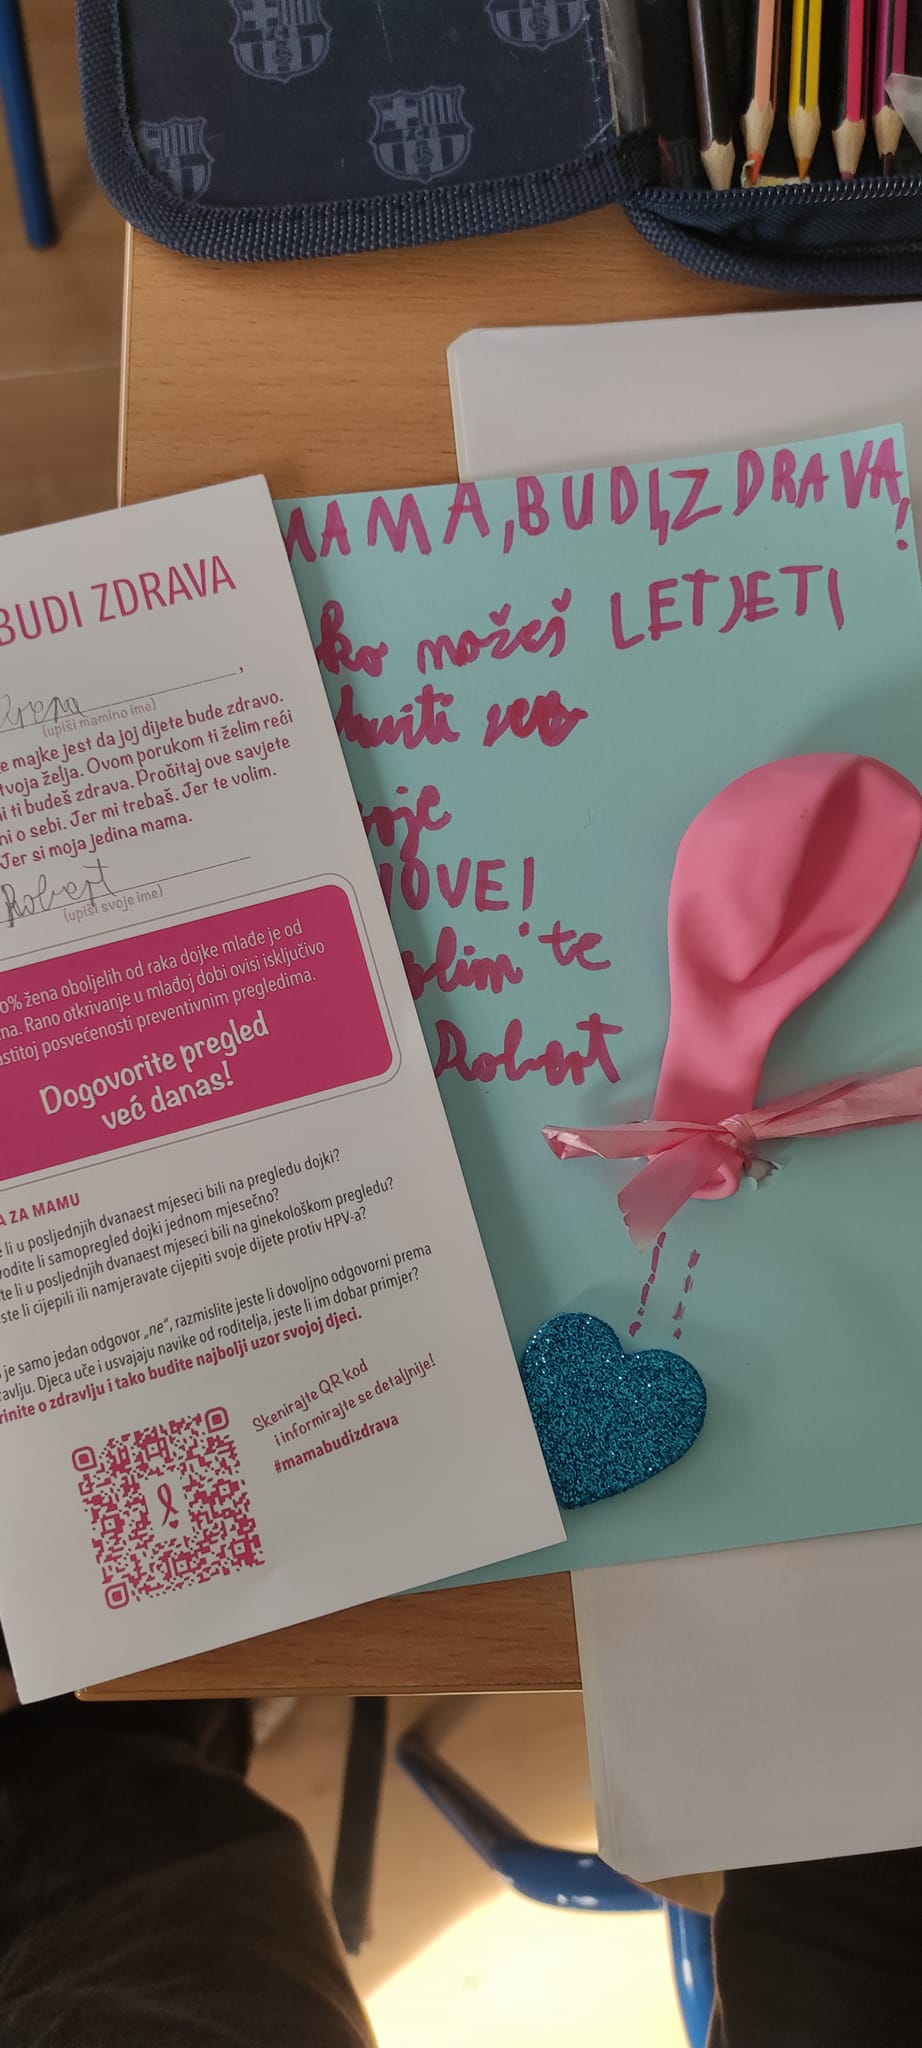 BUDI ZDRAVA
(upiši mamino ime)
e majke jest da joj dijete bude zdravo.
tvoja želja. Ovom porukom ti želim reći
i ti budeš zdrava. Pročitaj ove savjete
ni o sebi. Jer mi trebaš. Jer te volim.
Jer si moja jedina mama.
Robert
(upiši svoje ime)
0% žena oboljelih od raka dojke mlađe je od
na. Rano otkrivanje u mlađoj dobi ovisi isključivo
astitoj posvećenosti preventivnim pregledima.
Dogovorite pregled
već danas!
A ZA MAMU
e li u posljednjih dvanaest mjeseci bili na pregledu dojki?
vodite li samopregled dojki jednom mjesečno?
te li u posljednjih dvanaest mjeseci bili na ginekološkom pregledu?
ste li cijepili ili namjeravate cijepiti svoje dijete protiv HPV-a?
je samo jedan odgovor „ne“, razmislite jeste li dovoljno odgovorni prema
ravlju. Djeca uče i usvajaju navike od roditelja, jeste li im dobar primjer?
rinite o zdravlju i tako budite najbolji uzor svojoj djeci.
Skenirajte QR kod
i informirajte se detaljnije!
#mamabudizdrava
MAMA, BUDI ZDRAVA!
ko možeš LETJETI
viti
oje
NOVE!
olim te
Robert